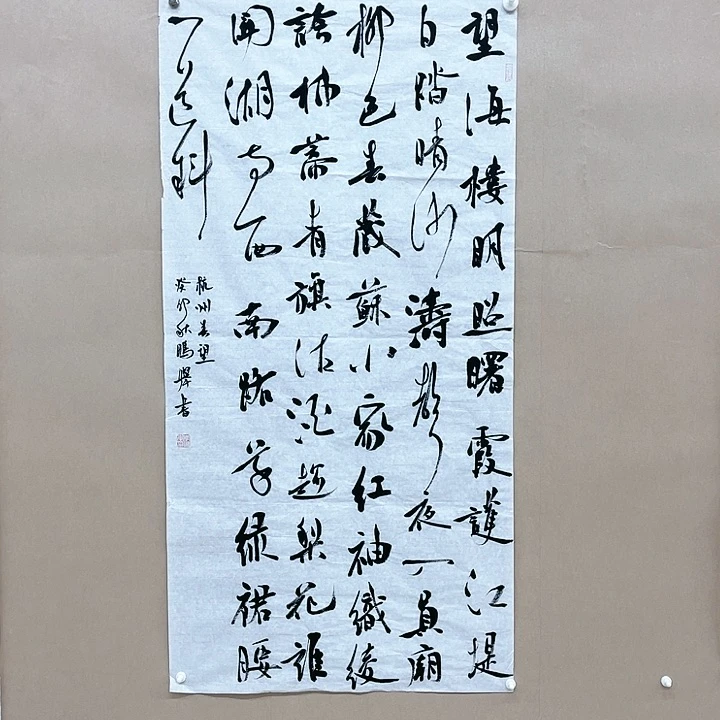 望海樓明照曙霞護江堤
白踏晴沙濤聲夜入員廟
柳色春藏蘇小家紅袖織綾
誇柿蒂青旗沽酒趁梨花誰
開湖寺西南路草綠裙腰
一道斜
杭州春望
癸卯秋書